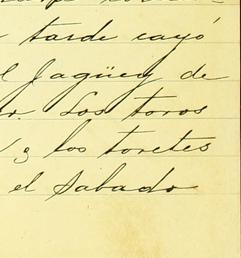 tarde cayó
l Jagüey de
r. Los toros
y los toretes
el Sabado